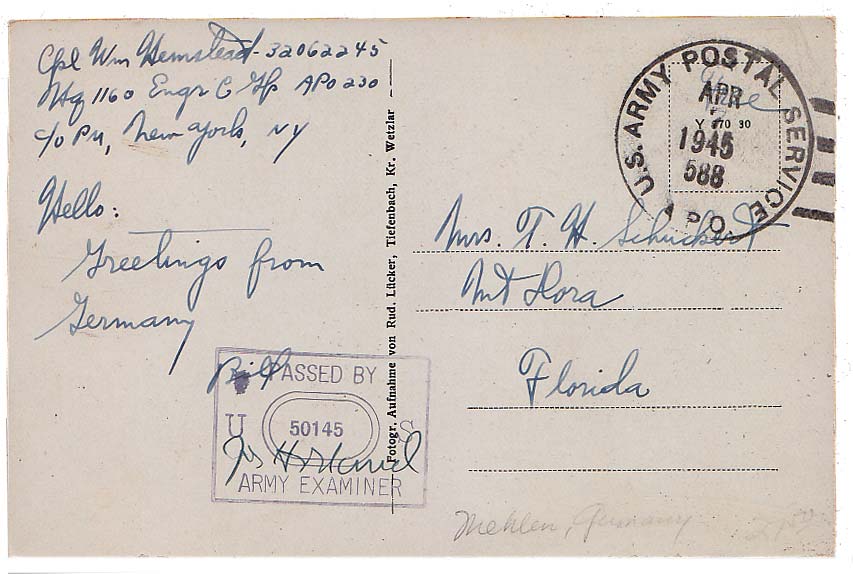 Cpl Wm Hemstead - 32062245
Hq 1160 Engr C Gp APO 230
c/o PM, New York, NY
Hello:
Greetings from
Germany
Bill
PASSED BY
U S
50145
ARMY EXAMINER
Fotogr. Aufnahme von Rud. Lücker, Tiefenbach, Kr. Wetzlar
U.S. ARMY POSTAL SERVICE
APR
1945
588
A.P.O.
Free
Y 370 30
Mrs. T. H. Schuckert
Mt Dora
Florida
Mehlen, Germany